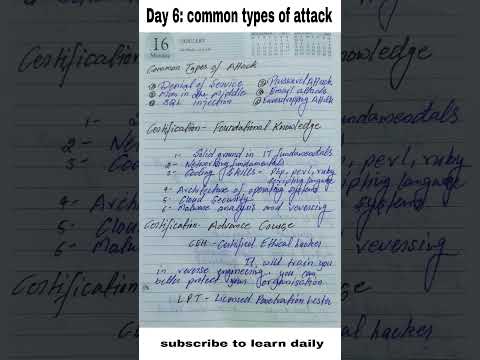 Day 6: common types of attack
16
JANUARY
Monday
Common Types of Attack
① Denial of Service ④ Password Attack
② Man in the Middle ⑤ Email attacks
③ SQL injection ⑥ Eavesdropping Attack
Certification - Foundational Knowledge
1- Solid ground in IT fundamentals
2- Networking fundamentals
3- Coding Skills - Php, perl, ruby
scripting language
4- Architecture of operating systems
5- Cloud Security
6- Malware analysis and reversing
Certification - Advance Course
CEH - Certified Ethical hacker
It will train you
in reverse engineering, you can
better protect your organisation
LPT - Licensed Penetration tester
subscribe to learn daily